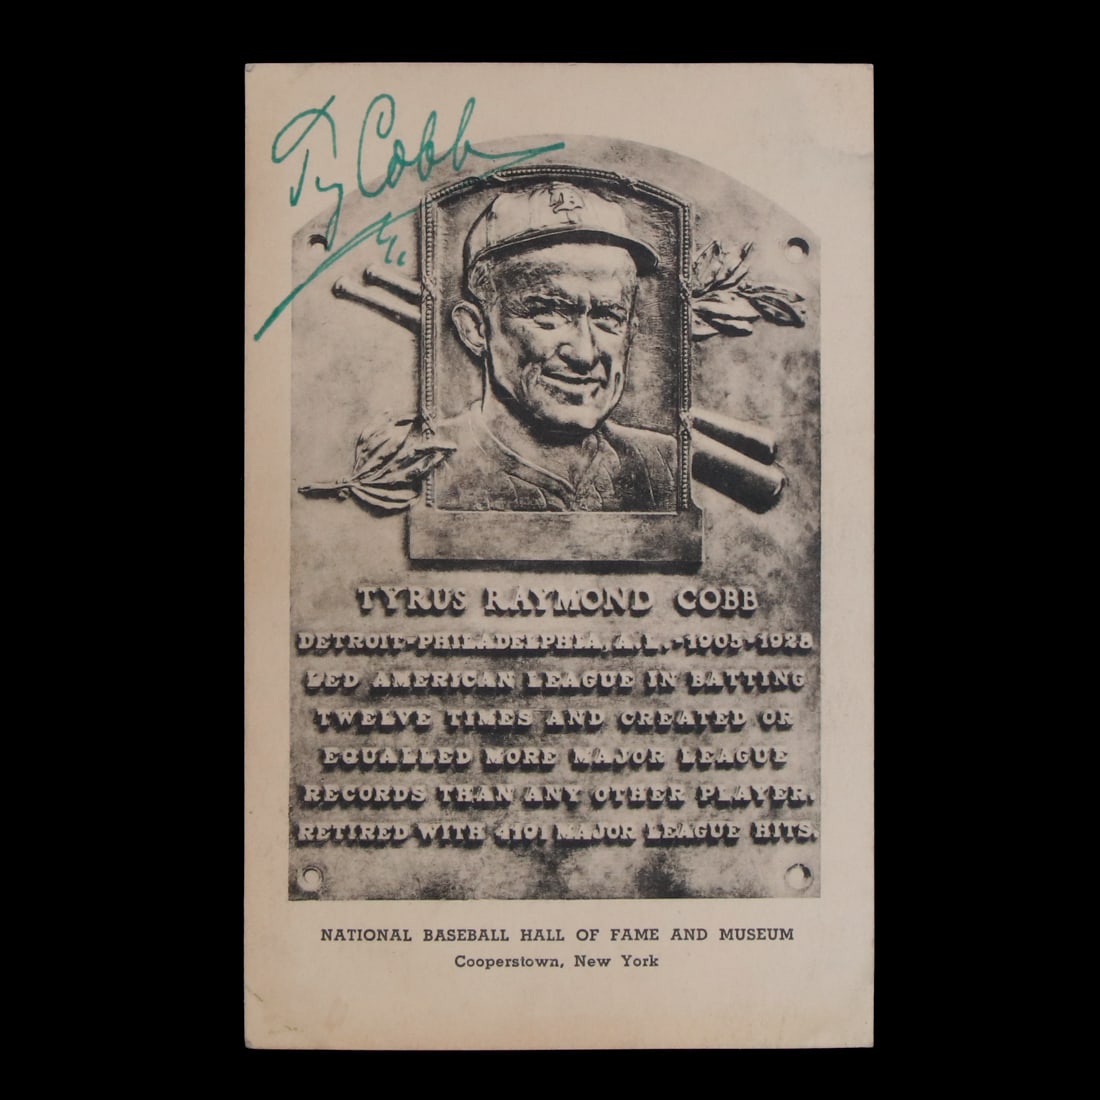 Ty Cobb
TYRUS RAYMOND COBB
DETROIT-PHILADELPHIA, A.L.-1905-1928
LED AMERICAN LEAGUE IN BATTING
TWELVE TIMES AND CREATED OR
EQUALLED MORE MAJOR LEAGUE
RECORDS THAN ANY OTHER PLAYER.
RETIRED WITH 4191 MAJOR LEAGUE HITS.
NATIONAL BASEBALL HALL OF FAME AND MUSEUM
Cooperstown, New York